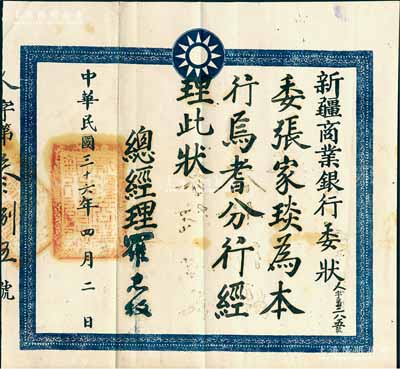 新疆商業銀行委狀
委張家琰為本
行焉耆分行經
理此狀
總經理羅志枚
中華民國三十六年四月二日
人字第
號